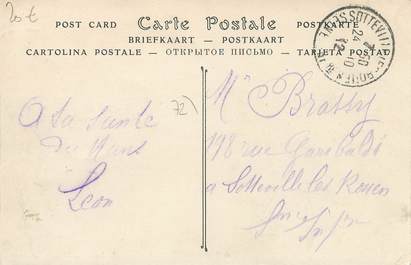 20 €
POST CARD Carte Postale POSTKARTE
BRIEFKAART - POSTKAART
CARTOLINA POSTALE - ОТКРЫТОЕ ПИСЬМО - TARJETA POSTAL
SOTTEVILLE-LES-ROUEN
24
12
10
72)
A la sainte
du Mans
Leon
Mr Brassy
198 rue Garibaldi
a Sotteville les Rouen
Sne Infre